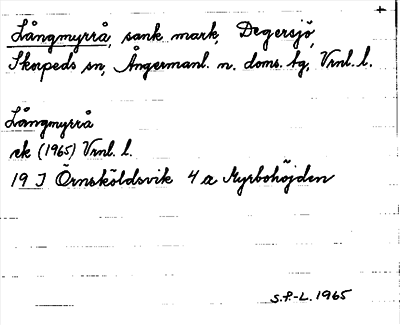 Långmyrrå, sank mark, Degersjö,
Skorpeds sn, Ångermanl. n. doms. tg, Vrnl. l.
Långmyrrå
ek (1965) Vrnl. l.
19 I Örnsköldsvik 4 a Myrbohöjden
S.P.-L. 1965